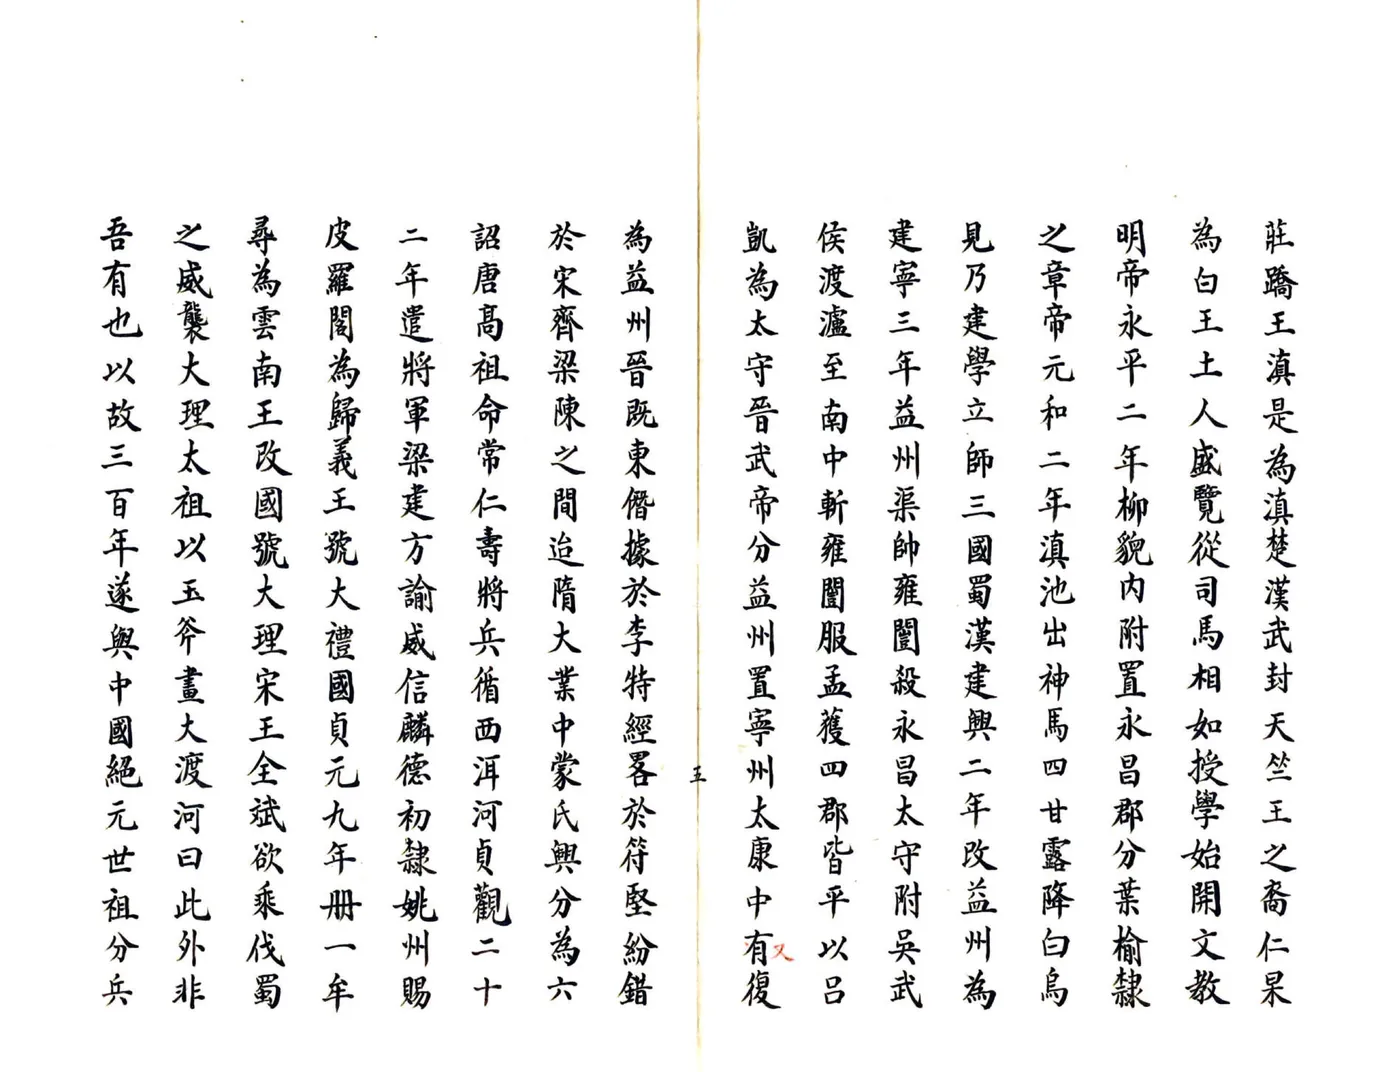 莊蹻王滇是為滇楚漢武封天竺王之裔仁杲
為白王土人盛覽從司馬相如授學始開文教
明帝永平二年柳貌内附置永昌郡分葉榆隸
之章帝元和二年滇池出神馬四甘露降白烏
見乃建學立師三國蜀漢建興二年改益州為
建寧三年益州渠帥雍闓殺永昌太守附吳武
侯渡瀘至南中斬雍闓服孟獲四郡皆平以吕
凱為太守晉武帝分益州置寧州太康中有復
又
五
為益州晉既東僭據於李特經畧於符堅紛錯
於宋齊梁陳之間迨隋大業中蒙氏興分為六
詔唐高祖命常仁壽將兵循西洱河貞觀二十
二年遣將軍梁建方諭威信麟德初隸姚州賜
皮羅閣為歸義王號大禮國貞元九年册一牟
尋為雲南王改國號大理宋王全斌欲乘伐蜀
之威襲大理太祖以玉斧畫大渡河曰此外非
吾有也以故三百年遂與中國絕元世祖分兵